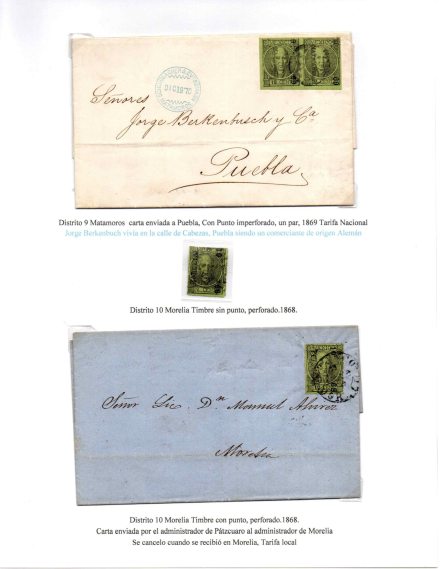 Señores
Jorge Berkenbusch y Ca
Puebla
Distrito 9 Matamoros carta enviada a Puebla, Con Punto imperforado, un par, 1869 Tarifa Nacional
Jorge Berkenbuch vivía en la calle de Cabezas, Puebla siendo un comerciante de origen Alemán
Distrito 10 Morelia Timbre sin punto, perforado.1868.
Señor Lic. Dn Manuel Alvirez
Morelia
Distrito 10 Morelia Timbre con punto, perforado.1868.
Carta enviada por el administrador de Pátzcuaro al administrador de Morelia
Se cancelo cuando se recibió en Morelia, Tarifa local